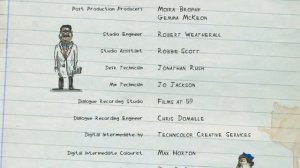 Post Production Producers Moira Brophy
Gemma McKeon
Studio Engineer Robert Weatherall
Studio Assistant Robbie Scott
Desk Technician Jonathan Rush
Mix Technician Jo Jackson
Dialogue Recording Studio Films at 59
Dialogue Recording Engineer Chris Domaille
Digital Intermediate by Technicolor Creative Services
Digital Intermediate Colourist Max Horton